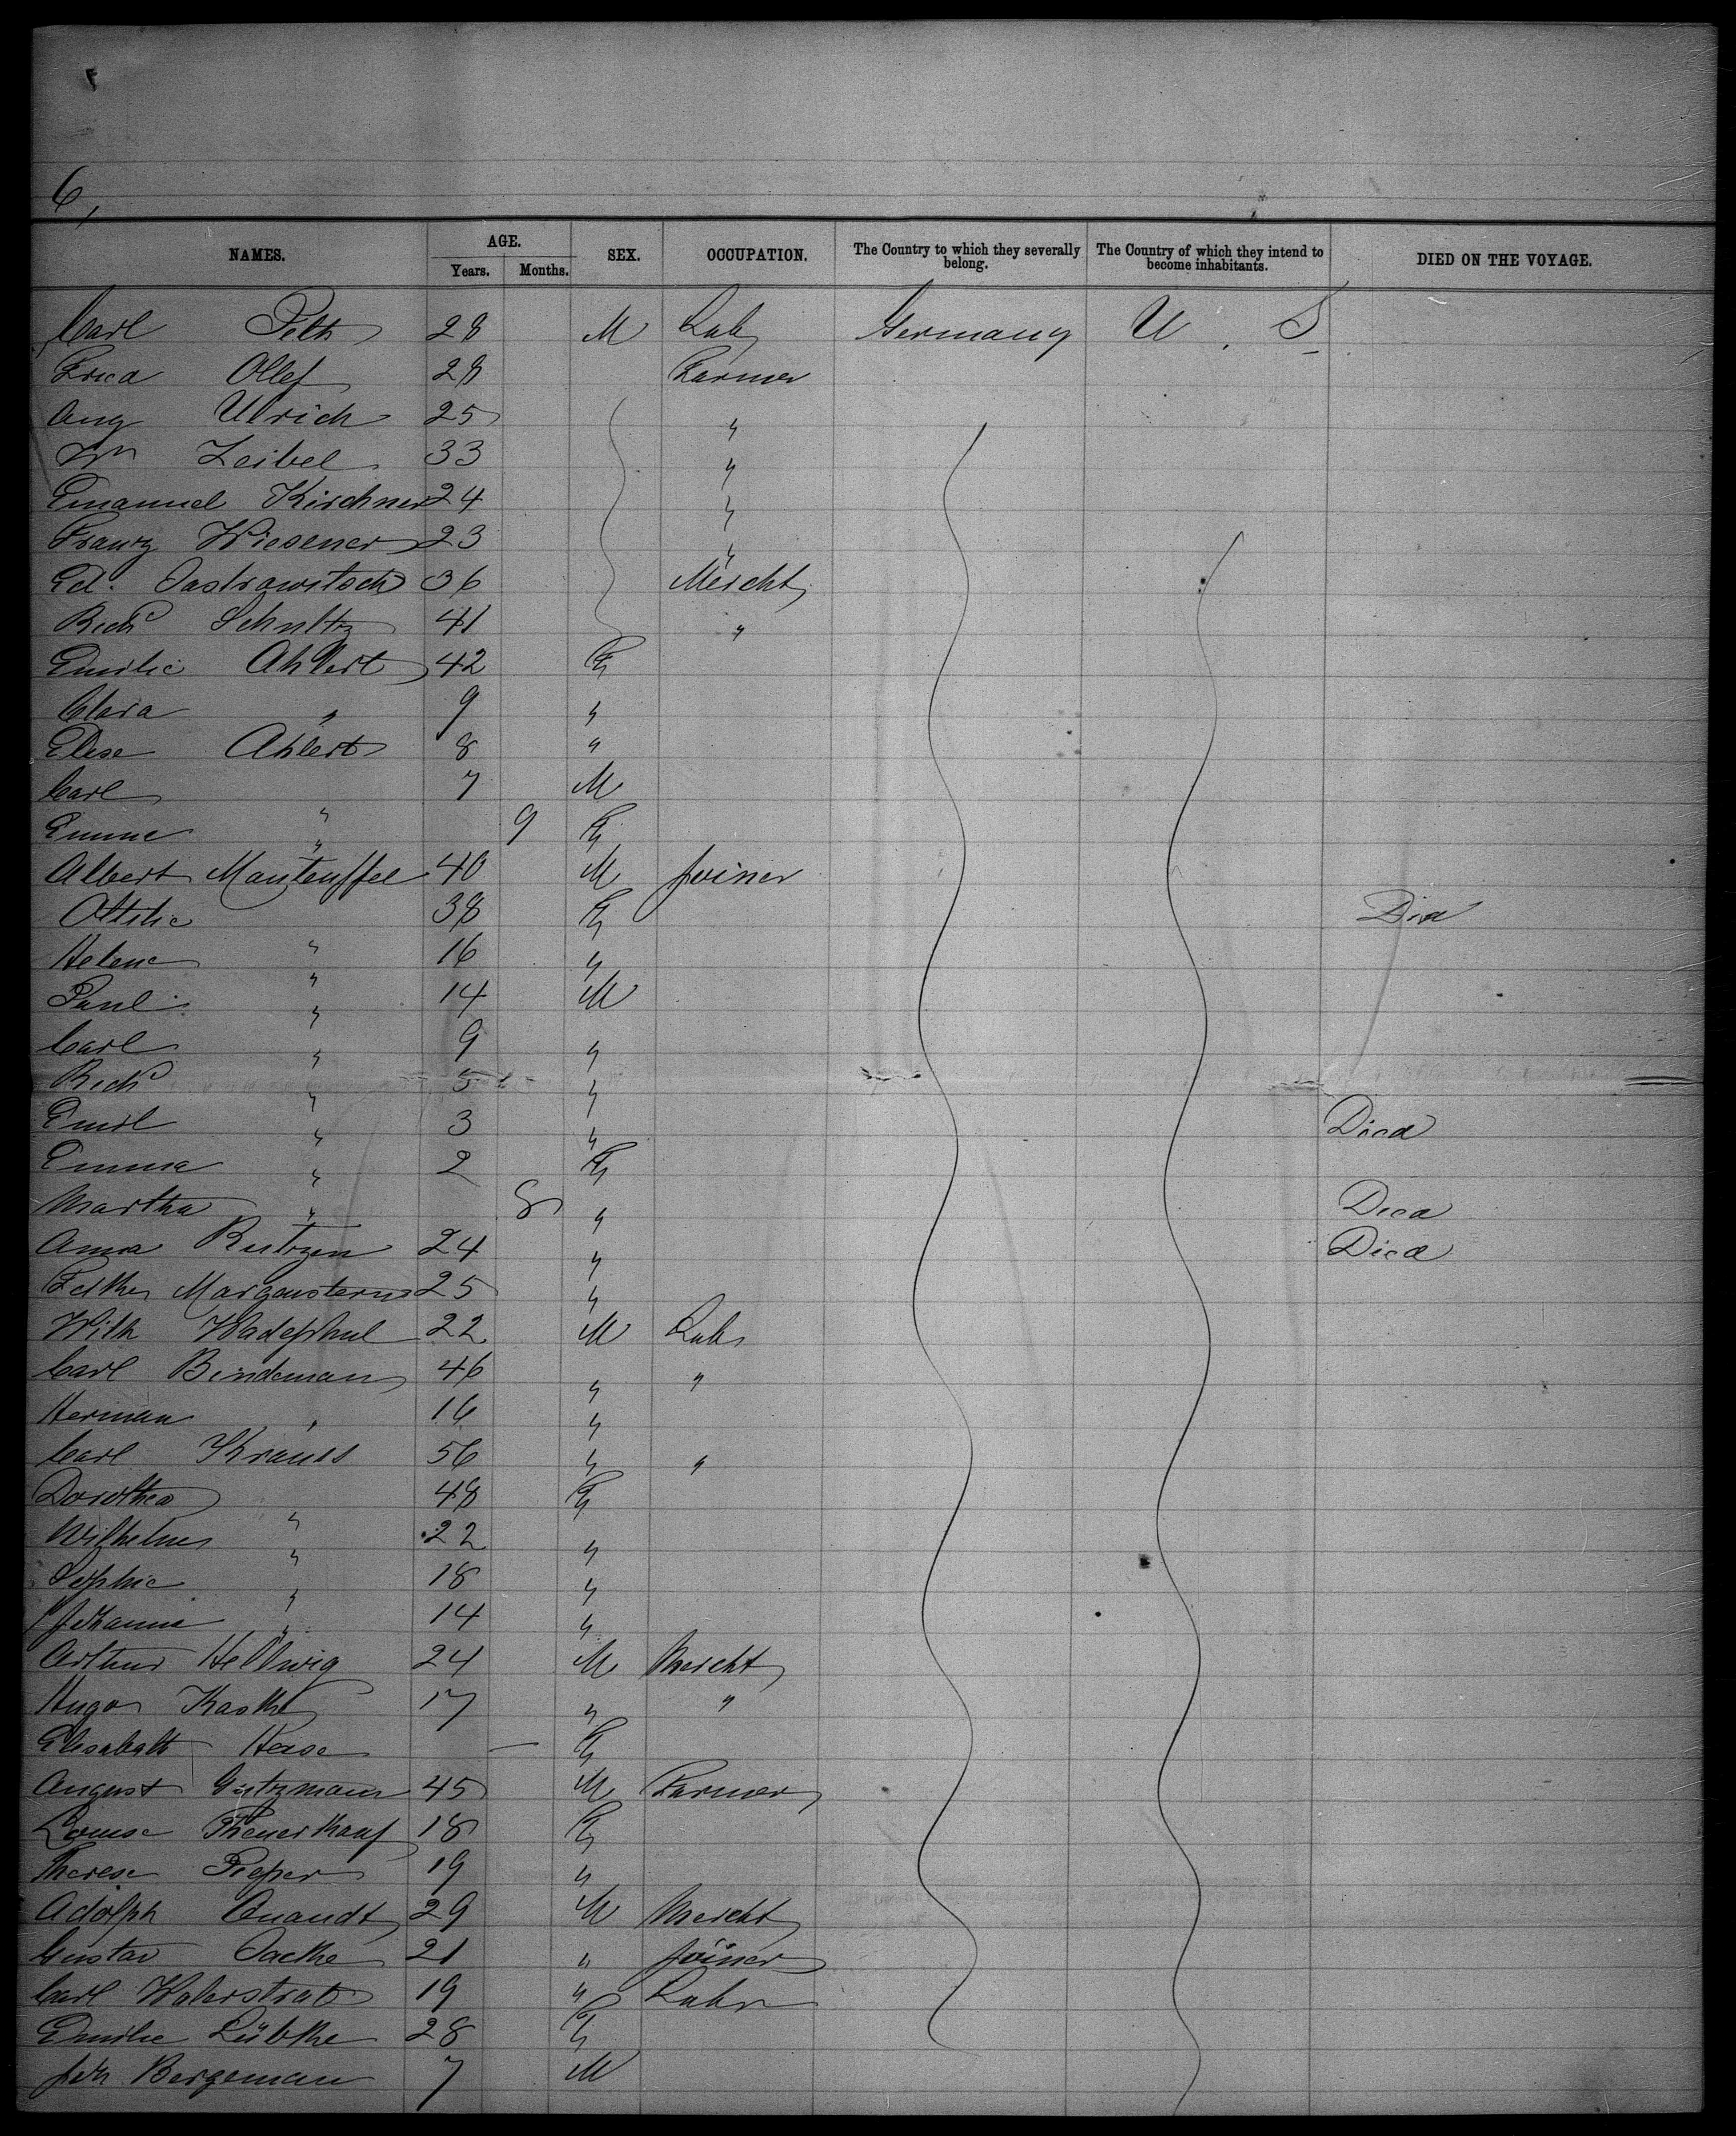 6,
NAMES. AGE. SEX. OCCUPATION. The Country to which they severally belong. The Country of which they intend to become inhabitants. DIED ON THE VOYAGE.
Years. Months.
Carl 28 M Lab Germany U. S
Olley 28 Farmer
Aug Ulrich 25 "
Wm Zeibel 33 "
Emanuel Kirchner 24 "
Franz Wiesener 23 "
Ed. 36 Mercht
Richd Schultz 41 "
Emilie Ahlert 42 F
Clara " 9 "
Elise Ahlert 8 "
Carl " 7 M
Emme " 9 F
Albert Manteuffel 40 M Joiner
Ottilie " 38 F Died
Helene " 16 "
Paul " 14 M
Carl " 9 "
Richd " 5 "
Emil " 3 " Died
Emma " 2 F
Martha " 8 " Died
Anna 24 " Died
Morgenstern 25 "
Wilh Wadephul 22 M Lab
Carl Bindeman 46 " "
Herman " 16 "
Carl Krauss 56 " "
Dorothea " 48 F
Wilhelm " 22 "
Sophie " 18 "
Johanna " 14 "
Arthur Hellwig 24 M Mercht
Hugo 17 " "
Elisabeth Hesse — F
August Gutzmann 45 M Farmer
Louise 18 F
Therese Pieper 19 "
Adolph Quandt 29 M Mercht
Gustav 21 " Joiner
Carl 19 " Labr
Emilie Lübke 28 F
Joh Bergeman 7 M